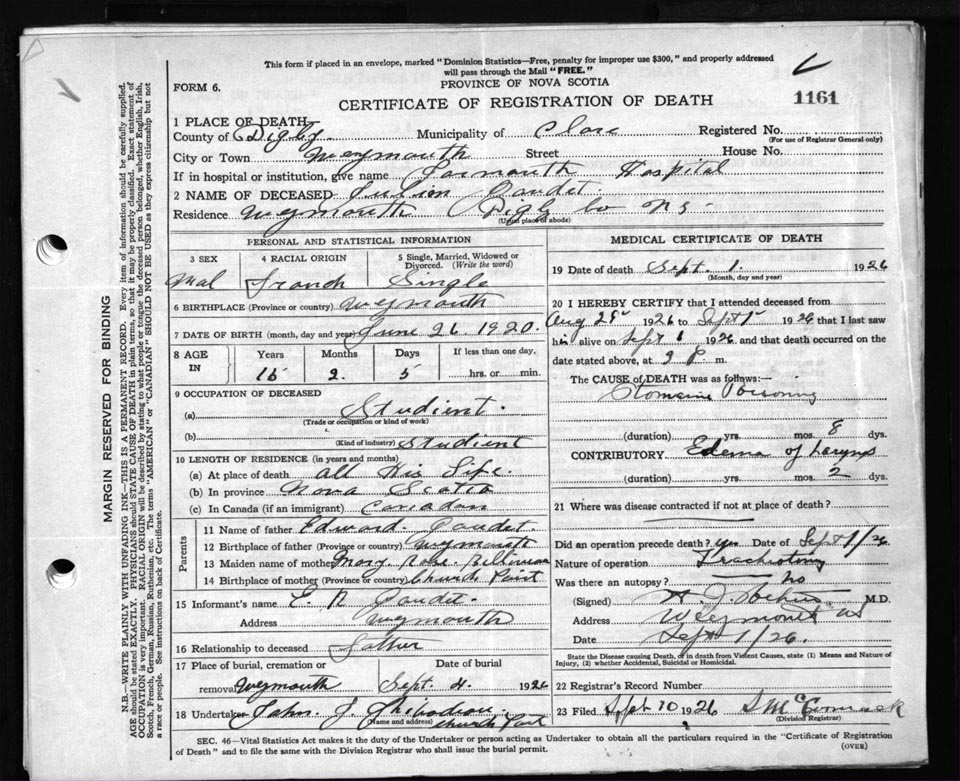 This form if placed in an envelope, marked "Dominion Statistics—Free, penalty for improper use $300," and properly addressed
will pass through the Mail "FREE."
FORM 6.
PROVINCE OF NOVA SCOTIA
CERTIFICATE OF REGISTRATION OF DEATH
1161
1 PLACE OF DEATH
County of Digby Municipality of Clare Registered No.
(For use of Registrar General only)
City or Town Weymouth Street House No.
If in hospital or institution, give name Yarmouth Hospital
2 NAME OF DECEASED Gaudet.
Residence Weymouth Digby Co NS
(Usual place of abode)
PERSONAL AND STATISTICAL INFORMATION
3 SEX 4 RACIAL ORIGIN 5 Single, Married, Widowed or Divorced. (Write the word)
Mal French Single
6 BIRTHPLACE (Province or country) Weymouth
7 DATE OF BIRTH (month, day and year) June 26 1920.
8 AGE IN Years Months Days If less than one day,
15 2 5 hrs. or min.
9 OCCUPATION OF DECEASED
(a) Studient.
(Trade or occupation or kind of work)
(b) Studient
(Kind of industry)
10 LENGTH OF RESIDENCE (in years and months)
(a) At place of death all His Life.
(b) In province Nova Scotia
(c) In Canada (if an immigrant) Canadan
Parents
11 Name of father Edward. Gaudet.
12 Birthplace of father (Province or country) Wymouth
13 Maiden name of mother Mary Rose
14 Birthplace of mother (Province or country) Church Point
15 Informant's name E. N Gaudet.
Address Wymouth
16 Relationship to deceased Father
17 Place of burial, cremation or removal Date of burial
Weymouth Sept. 4. 1926
18 Undertaker John. J. Thibodeau
(Name and address) Church Point
MEDICAL CERTIFICATE OF DEATH
19 Date of death Sept. 1 1926
(Month, day and year)
20 I HEREBY CERTIFY that I attended deceased from
Aug 25 1926 to Sept 1 1926 that I last saw
him alive on Sept 1 1926 and that death occurred on the
date stated above, at 9 P. m.
The CAUSE of DEATH was as follows:—
Ptomaine Poisoning
(duration) yrs. mos. 8 dys.
CONTRIBUTORY Edema of Larynx
(duration) yrs. mos. 2 dys.
21 Where was disease contracted if not at place of death?
Did an operation precede death? yes Date of Sept 1/26
Nature of operation Tracheotomy
Was there an autopsy? no
(Signed) M.D.
Address Weymouth NS
Date Sept 1/26.
State the Disease causing Death, or in death from Violent Causes, state (1) Means and Nature of
Injury, (2) whether Accidental, Suicidal or Homicidal.
22 Registrar's Record Number
23 Filed Sept 10 1926 McCormack
(Division Registrar)
SEC. 46—Vital Statistics Act makes it the duty of the Undertaker or person acting as Undertaker to obtain all the particulars required in the "Certificate of Registration
of Death" and to file the same with the Division Registrar who shall issue the burial permit.
(OVER)
MARGIN RESERVED FOR BINDING
N.B.—WRITE PLAINLY WITH UNFADING INK—THIS IS A PERMANENT RECORD. Every item of information should be carefully supplied.
AGE should be stated EXACTLY. PHYSICIANS should STATE CAUSE OF DEATH in plain terms, so that it may be properly classified. Exact statement of
OCCUPATION is very important. RACIAL ORIGIN will be described by stating to what people or tongue the deceased person belonged, whether English, Irish,
Scotch, French, German, Russian, Ruthenian, etc. The terms "AMERICAN" or "CANADIAN" SHOULD NOT BE USED as they express citizenship but not
a race or people. See instructions on back of Certificate.